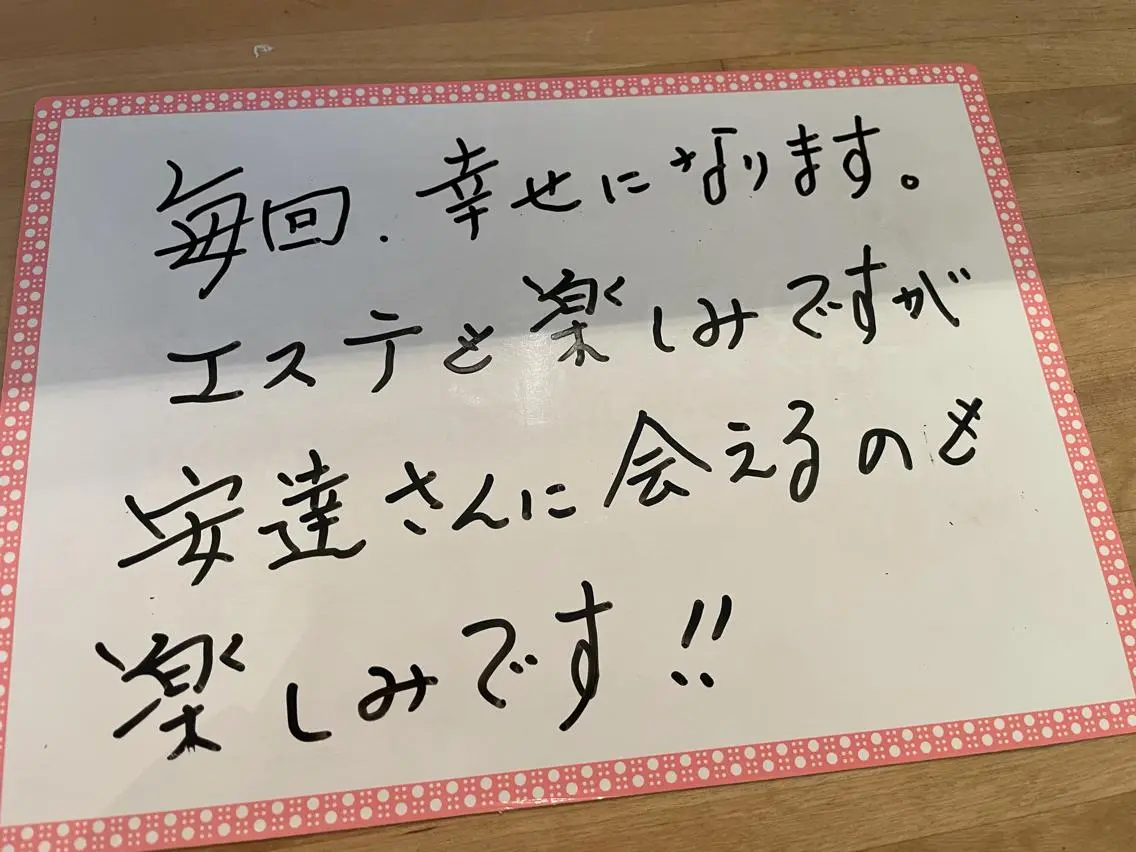 毎回、幸せになります。
エステも楽しみですが
安達さんに会えるのも
楽しみです!!